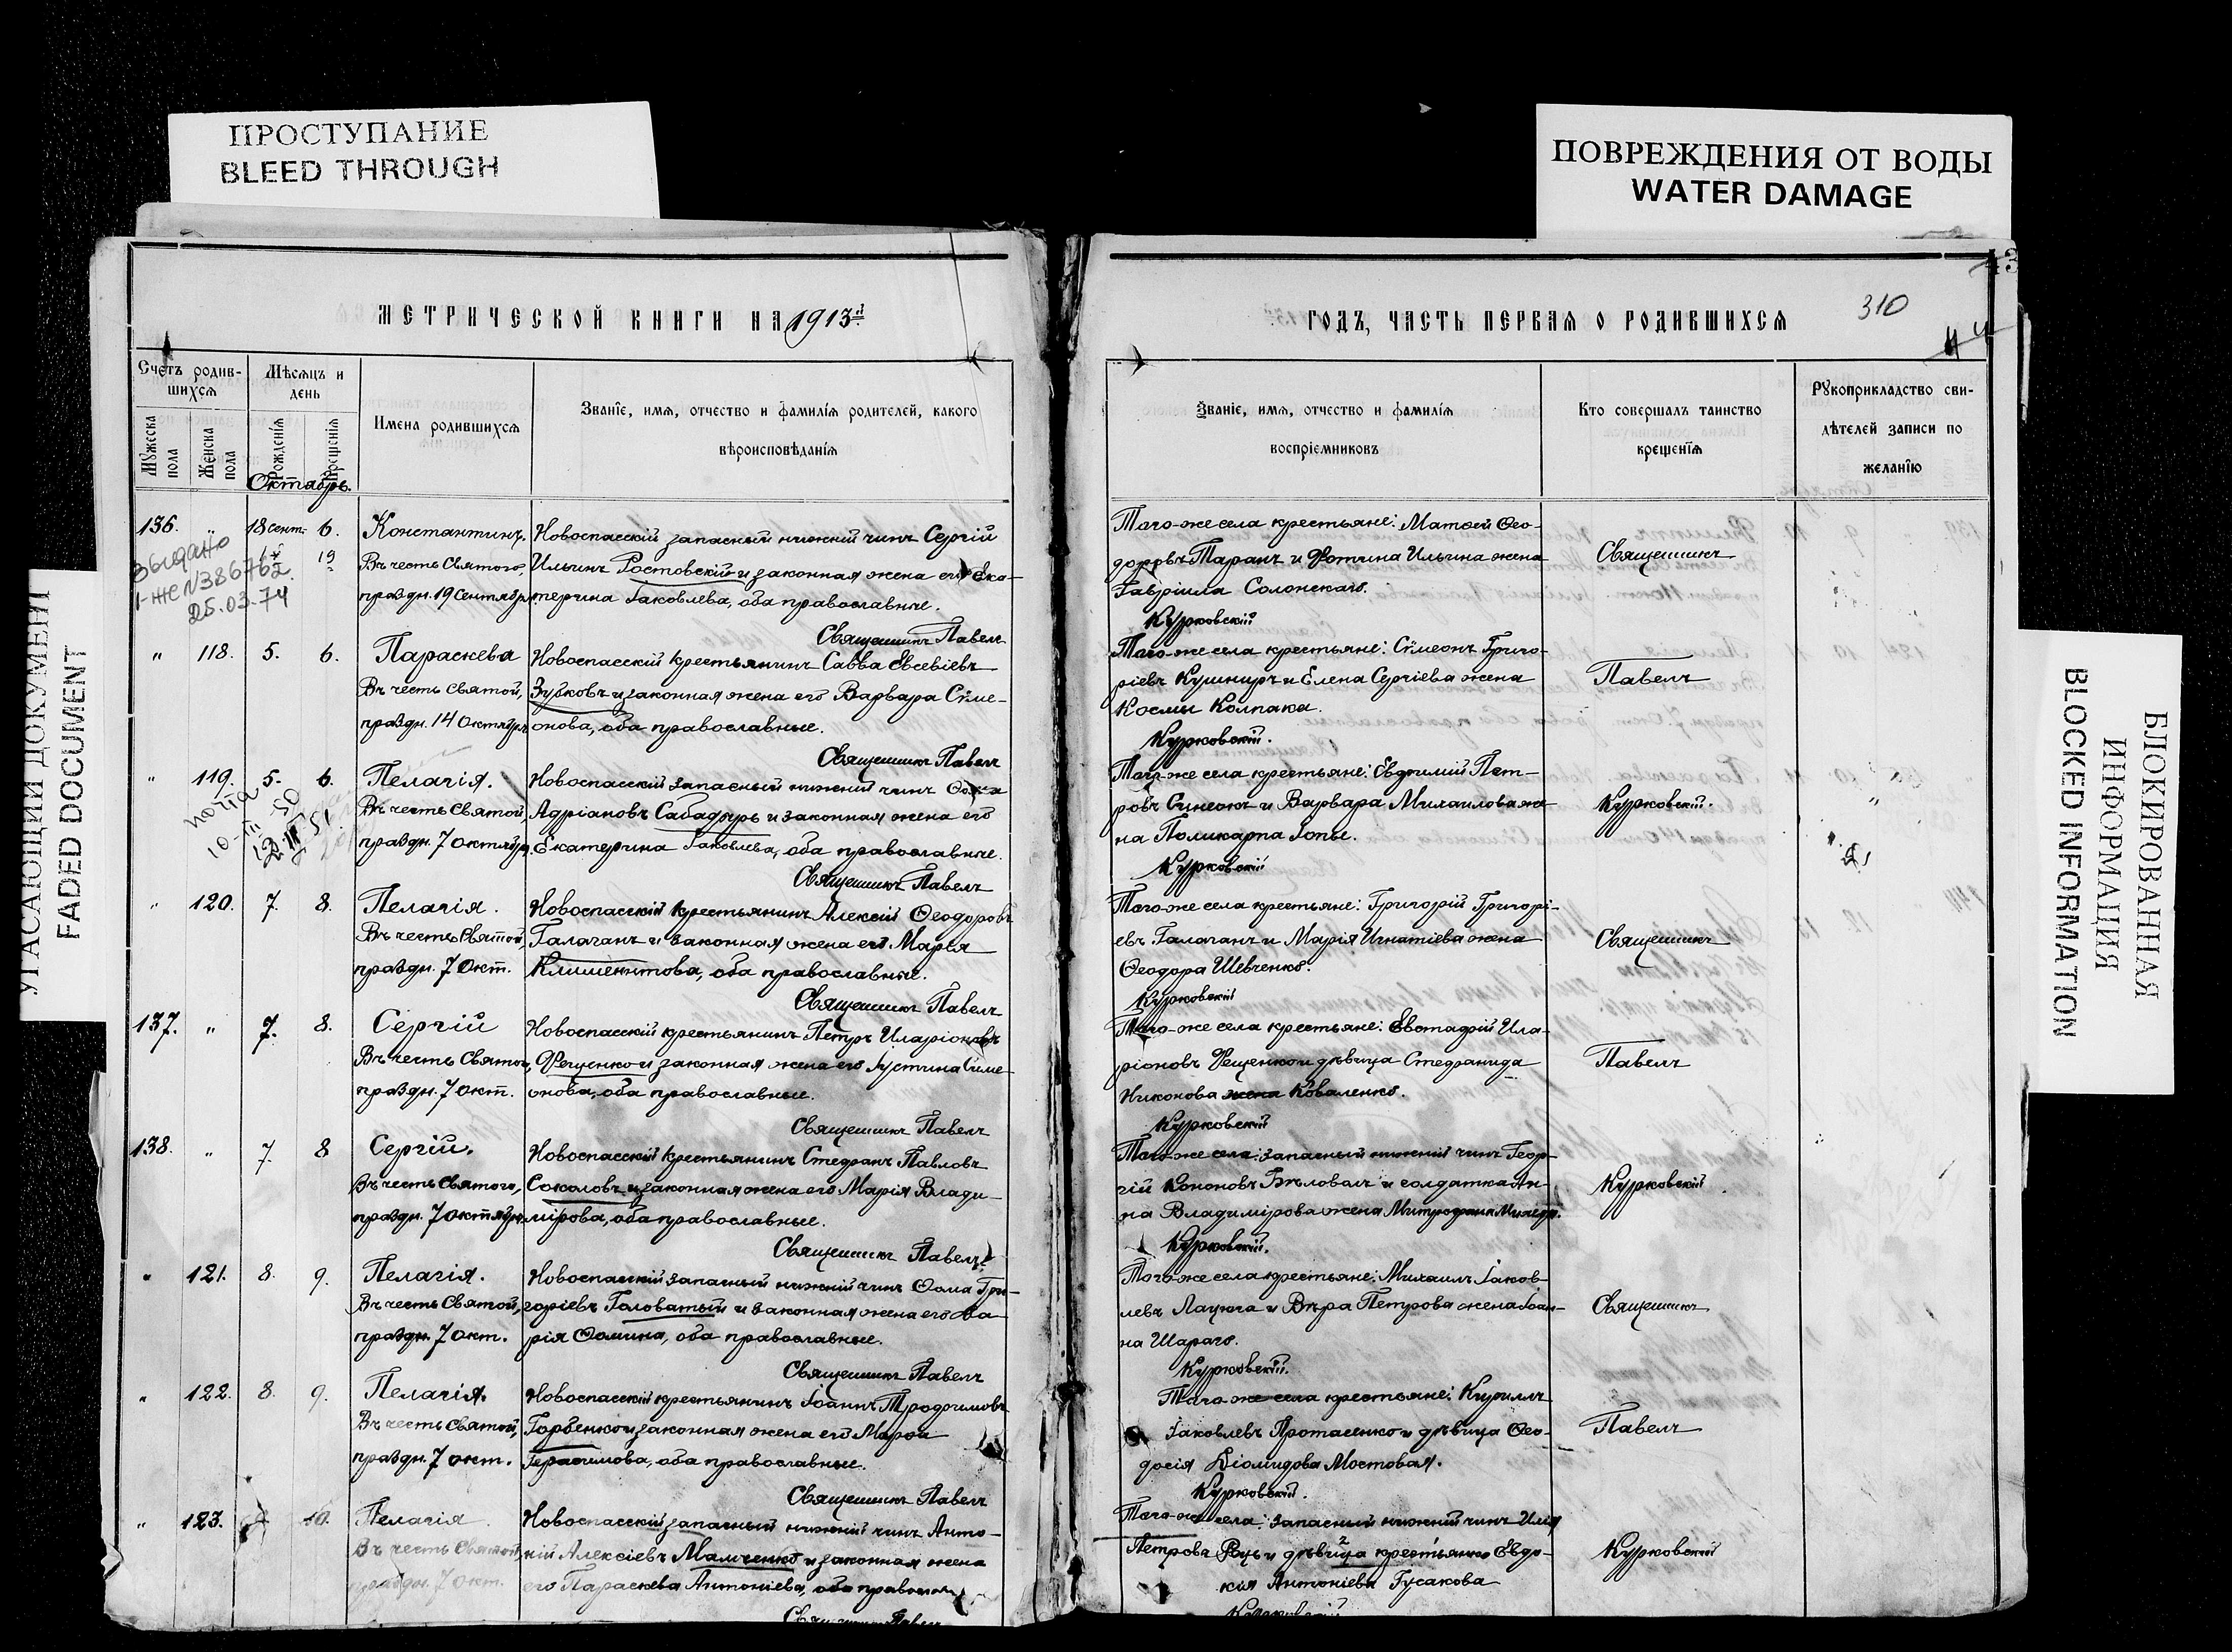 ПРОСТУПАНИЕ
BLEED THROUGH
ПОВРЕЖДЕНИЯ ОТ ВОДЫ
WATER DAMAGE
УГАСАЮЩИЙ ДОКУМЕНТ
FADED DOCUMENT
БЛОКИРОВАННАЯ
ИНФОРМАЦИЯ
BLOCKED INFORMATION
МЕТРИЧЕСКОЙ КНИГИ НА 1913й
Счетъ родив-
шихся
Мѣсяцъ и
день
Мужеска
пола
Женска
пола
Рожденія
Крещенія
Имена родившихся
Званіе, имя, отчество и фамилія родителей, какого
вѣроисповѣданія
Октябрь.
136. " 18 сент. 6. Константинъ. Новоспасскій запасный нижній чинъ Сергій
19 Въ честь Святого, Ильинъ Ростовскій и законная жена его Ека-
праздн. 19 Сентября. терина Іаковлева, оба православные.
выдано
I-ЖС N386762
25.03.74
Священникъ Павелъ
" 118. 5. 6. Параскева Новоспасскій крестьянинъ Савва Евсевіевъ
Въ честь Святой, Зубковъ и законная жена его Варвара Сѵме-
праздн. 14 Октября онова, оба православные.
Священникъ Павелъ
" 119. 5. 6. Пелагія. Новоспасскій запасный нижній чинъ
Въ честь Святой Адріановъ Сабадырь и законная жена его
праздн. 7 октября. Екатерина Іаковлева, оба православные.
Священникъ Павелъ
" 120. 7. 8. Пелагія. Новоспасскій крестьянинъ Алексій Ѳеодоровъ
Въ честь Святой, Галаганъ и законная жена его Марія
праздн. 7 Окт. Климентова, оба православные.
Священникъ Павелъ
137. " 7. 8. Сергій Новоспасскій крестьянинъ Петръ Иларіоновъ
Въ честь Святого, Фещенко и законная жена его Іустина Сѵме-
праздн. 7 окт. онова, оба православные.
Священникъ Павелъ
138. " 7. 8 Сергій. Новоспасскій крестьянинъ Стефанъ Павловъ
Въ честь Святого, Соколовъ и законная жена его Марія Влади-
праздн. 7 октября. мірова, оба православные.
Священникъ Павелъ
" 121. 8. 9. Пелагія. Новоспасскій запасный нижній чинъ Ѳома Гри-
Въ честь Святой, горіевъ Головатый и законная жена его Ма-
праздн. 7 окт. рія Ѳомина, оба православные.
Священникъ Павелъ
" 122. 8. 9. Пелагія. Новоспасскій крестьянинъ Іоаннъ Трофимовъ
Въ честь Святой, Горбенко и законная жена его Марѳа
праздн. 7 окт. Герасимова, оба православные.
Священникъ Павелъ
" 123. 10. Пелагія Новоспасскій запасный нижній чинъ Анто-
Въ честь Святой, ній Алексіевъ Мамченко и законная жена
праздн. 7 окт. его Параскева Антоніева, оба правосл.
Священникъ Павелъ
ГОДЪ, ЧАСТЬ ПЕРВАЯ О РОДИВШИХСЯ
310
Званіе, имя, отчество и фамилія
воспріемниковъ
Кто совершалъ таинство
крещенія
Рукоприкладство сви-
дѣтелей записи по
желанію
Того-же села крестьяне: Матѳей Ѳео-
доровъ Таранъ и Фотина Ильина жена Священникъ
Гавріила Солонскаго.
Курковскій
Того-же села крестьяне: Сѵмеонъ Григо-
ріевъ Кушниръ и Елена Сергіева жена Павелъ
Космы Колпака.
Курковскій.
Того-же села крестьяне: Евфимій Пет-
ровъ Синеокъ и Варвара Михаилова же- Курковскій.
на Поликарпа Іопы.
Курковскій
Того-же села крестьяне: Григорій Григорі-
евъ Галаганъ и Марія Игнатіева жена Священникъ
Ѳеодора Шевченко.
Курковскій
Того-же села крестьяне: Евстафій Ила-
ріоновъ Фещенко и дѣвица Стефанида Павелъ
Никонова жена Коваленко.
Курковскій
Того-же села: запасный нижній чинъ Геор-
гій Кононовъ Бѣловалъ и солдатка Ан- Курковскій
на Владимірова жена Митрофана
Курковскій.
Того-же села крестьяне: Михаилъ Іаков-
левъ Лацюга и Вѣра Петрова жена Іоан- Священникъ
на Шараго.
Курковскій.
Того-же села крестьяне: Кириллъ
Іаковлевъ Протасенко и дѣвица Ѳео- Павелъ
досія Діомидова Мостовая.
Курковскій.
Того-же села: запасный нижній чинъ Илія
Петровъ Руць и дѣвица крестьянка Евдо- Курковскій
кія Антоніева Гусакова
Курковскій